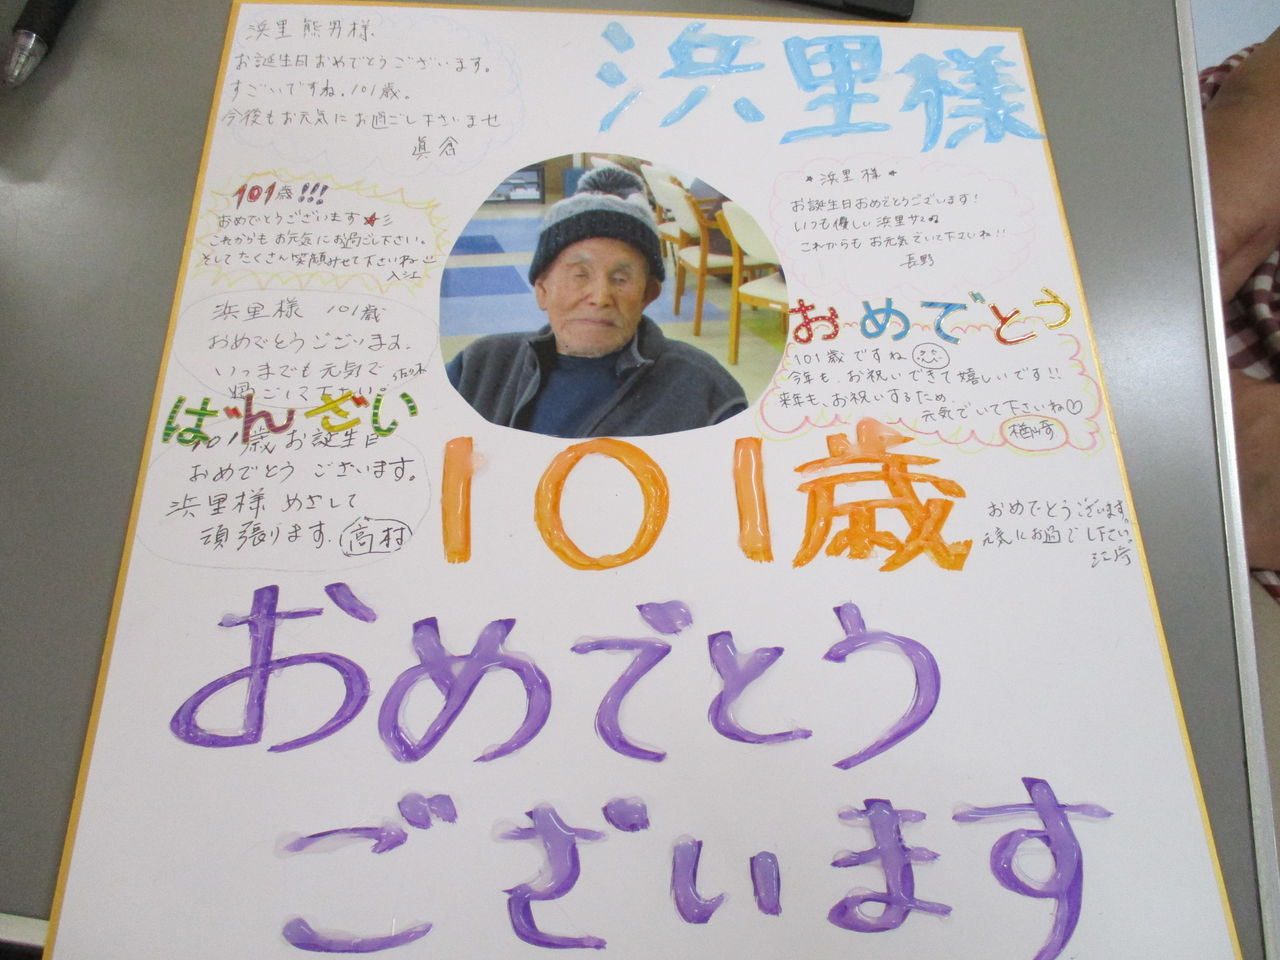 浜里様
浜里熊男様
お誕生日おめでとうございます。
すごいですね。101歳。
今後もお元気にお過ごし下さいませ
101歳!!!
おめでとうございます★彡
これからもお元気にお過ごし下さい。
そしてたくさん笑顔みせて下さいね
入江
浜里様 101歳
おめでとうございます。
いつまでも元気で
過ごして下さい。
ばんざい
101歳お誕生日
おめでとう ございます。
浜里様 めざして
頑張ります。 高村
★浜里様★
お誕生日おめでとうございます!
いつも優しい浜里サン
これからも お元気でいて下さいね!!
長野
おめでとう
101歳ですね
今年も、お祝いできて嬉しいです!!
来年も、お祝いするため、
元気でいて下さいね♡
楢崎
おめでとうございます。
元気にお過ごし下さい。
101歳
おめでとう
ございます